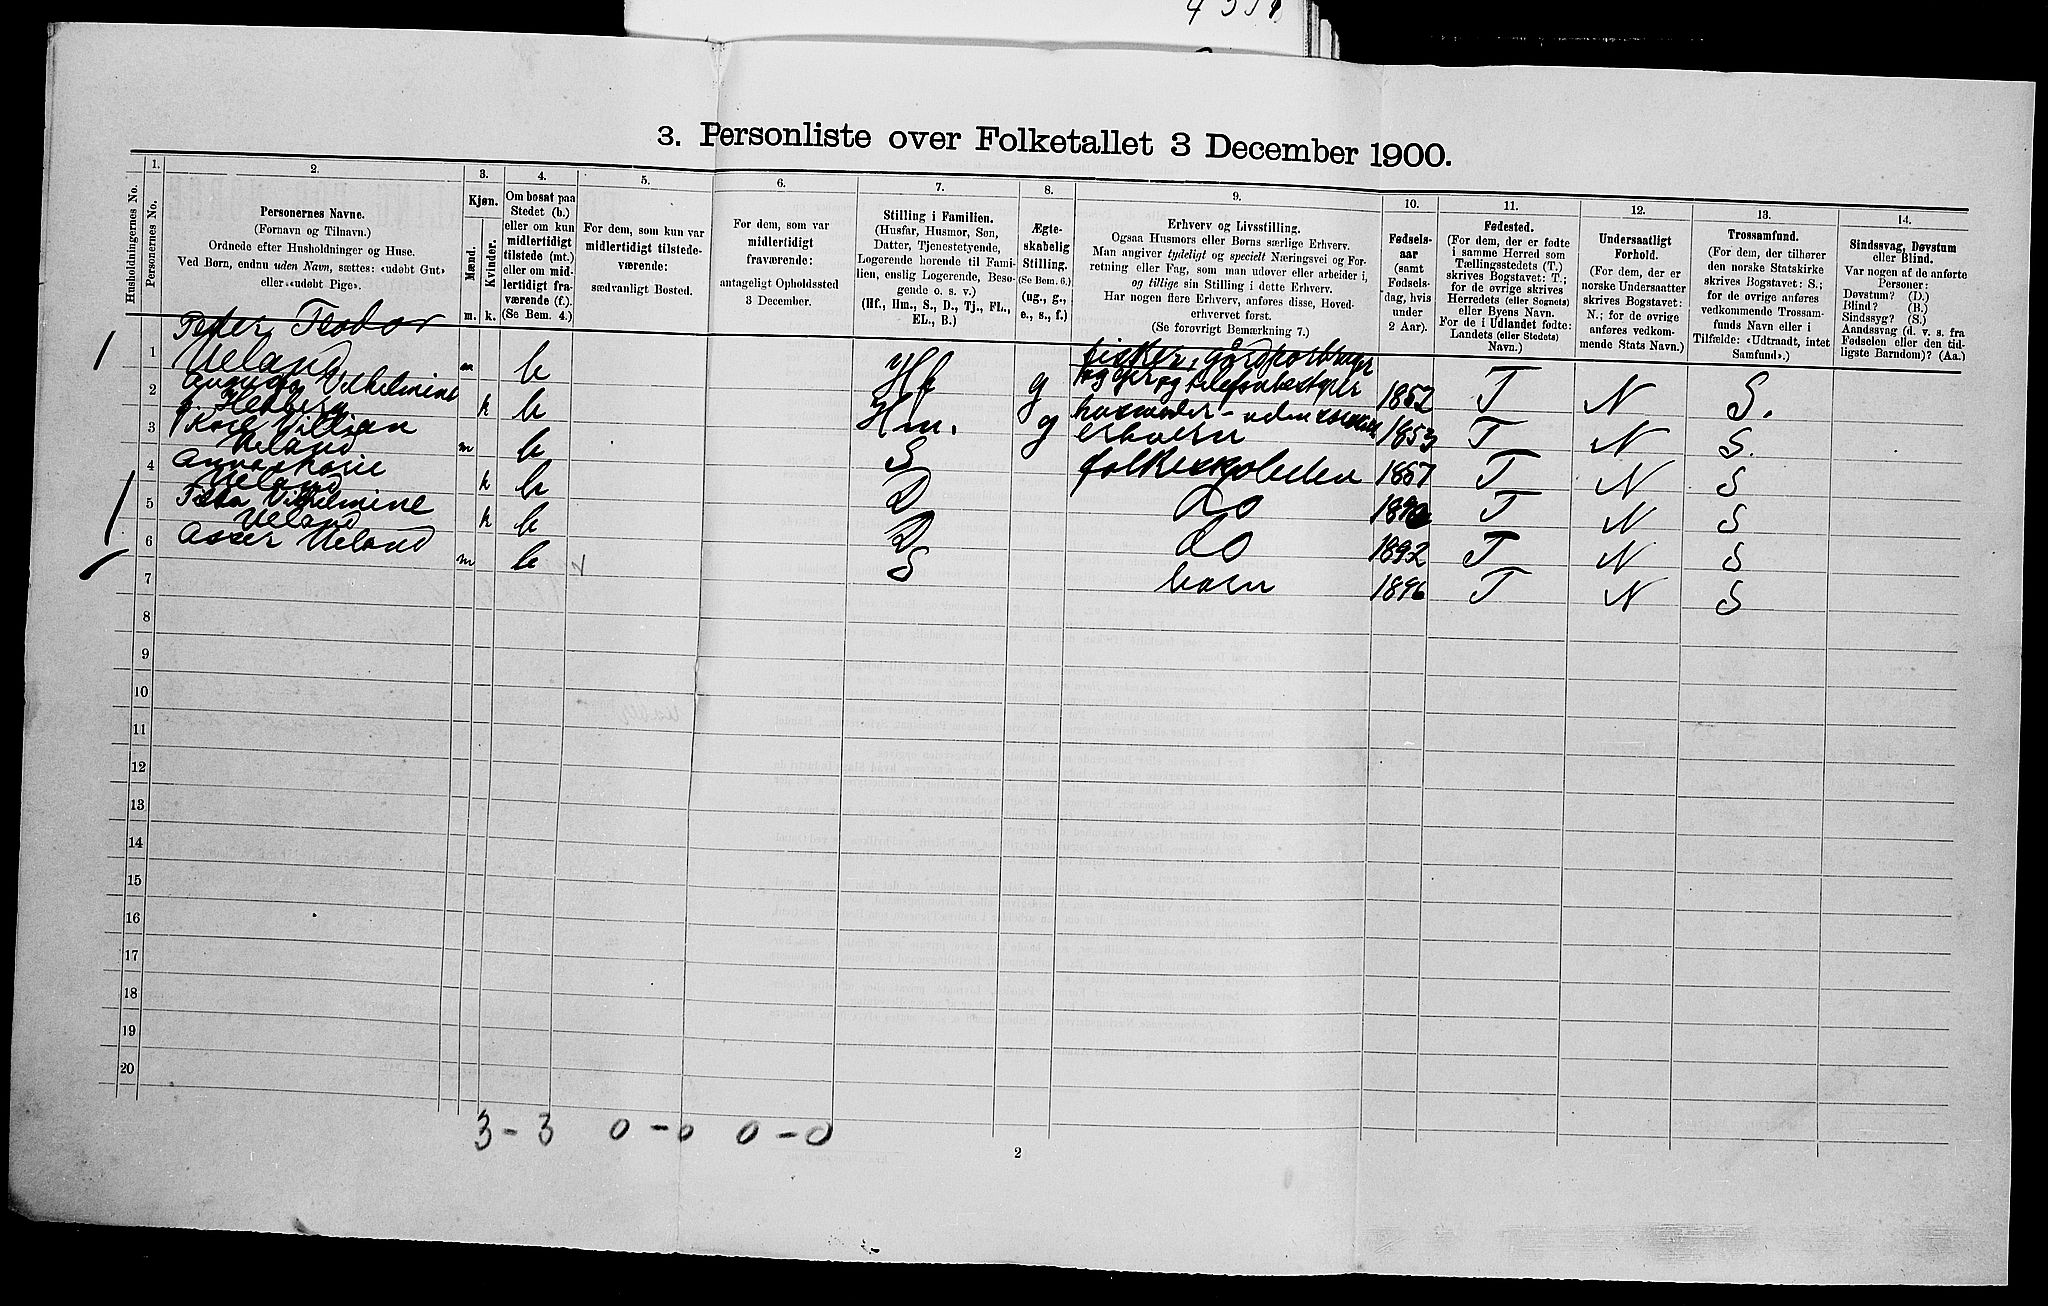 3. Personliste over Folketallet 3 December 1900.
Husholdningernes No.
1.
Personernes No.
2.
Personernes Navne.
(Fornavn og Tilnavn.)
Ordnede efter Husholdninger og Huse.
Ved Børn, endnu uden Navn, sættes: «udøbt Gut»
eller «udøbt Pige».
3.
Kjøn.
Mænd.
Kvinder.
m. k.
4.
Om bosat paa
Stedet (b.)
eller om kun
midlertidigt
tilstede (mt.)
eller om mid-
lertidigt fra-
værende (f.).
(Se Bem. 4.)
5.
For dem, som kun var
midlertidigt tilstede-
værende:
sædvanligt Bosted.
6.
For dem, som var
midlertidigt
fraværende:
antageligt Opholdssted
3 December.
7.
Stilling i Familien.
(Husfar, Husmor, Søn,
Datter, Tjenestetyende,
Logerende hørende til Fami-
lien, enslig Logerende, Besø-
gende o. s. v.)
(Hf., Hm., S., D., Tj., FL.,
EL., B.)
8.
Ægte-
skabelig
Stilling.
(Se Bem. 6.)
(ug., g.,
e., s., f.)
9.
Erhverv og Livsstilling.
Ogsaa Husmors eller Børns særlige Erhverv.
Man angiver tydeligt og specielt Næringsvei og For-
retning eller Fag, som man udøver eller arbeider i,
og tillige sin Stilling i dette Erhverv.
Har nogen flere Erhverv, anføres disse, Hoved-
erhvervet først.
(Se forøvrigt Bemærkning 7.)
10.
Fødsels-
aar
(samt
Fødsels-
dag, hvis
under
2 Aar).
11.
Fødested.
(For dem, der er fødte
i samme Herred som
Tællingsstedets (T.)
skrives Bogstavet: T.;
for de øvrige skrives
Herredets (eller Sognets)
eller Byens Navn.
For de i Udlandet fødte:
Landets (eller Stedets)
Navn.)
12.
Undersaatligt
Forhold.
(For dem, der er
norske Undersaatter
skrives Bogstavet:
N.; for de øvrige
anføres vedkom-
mende Stats Navn.)
13.
Trossamfund.
(For dem, der tilhører
den norske Statskirke
skrives Bogstavet: S.;
for de øvrige anføres
vedkommende Trossam-
funds Navn eller i
Tilfælde: «Udtraadt, intet
Samfund».)
14.
Sindssvag, Døvstum
eller Blind.
Var nogen af de anførte
Personer:
Døvstum? (D.)
Blind? (B.)
Sindssyg? (S.)
Aandssvag (d. v. s. fra
Fødselen eller den tid-
ligste Barndom)? (Aa.)
Peder Teodor
1 Ueland m b Hf g fisker, gårdforbruger 1852 T N S.
Vilhelmine
2 Hedberg k b Hm. g husmoder - uden 1853 T N S.
erhvern
Villian
3 Ueland m b S folkeskoleelev 1887 T N S
Anna Marie
4 Ueland k b D do T N S
Vilhelmine
5 Ueland k b D do 1892 T N S
6 Asser Ueland m b S barn 1896 T N S
7
8
9
10
11
12
13
14
15
16
17
18
19
20
3 - 3 0 - 0 0 - 0
2